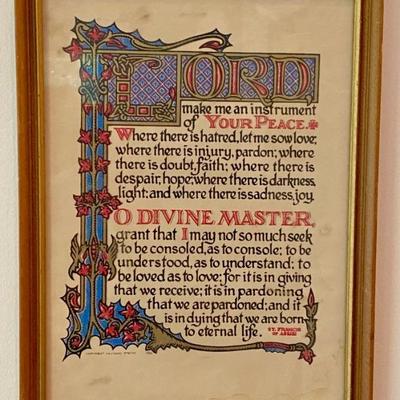 LORD
make me an instrument
of YOUR PEACE.
Where there is hatred, let me sow love;
where there is injury, pardon; where
there is doubt, faith; where there is
despair, hope; where there is darkness,
light: and where there is sadness, joy.
O DIVINE MASTER,
grant that I may not so much seek
to be consoled, as to console; to be
understood, as to understand; to
be loved as to love; for it is in giving
that we receive; it is in pardoning
that we are pardoned; and it
is in dying that we are born
to eternal life.
ST. FRANCIS
OF ASSISI